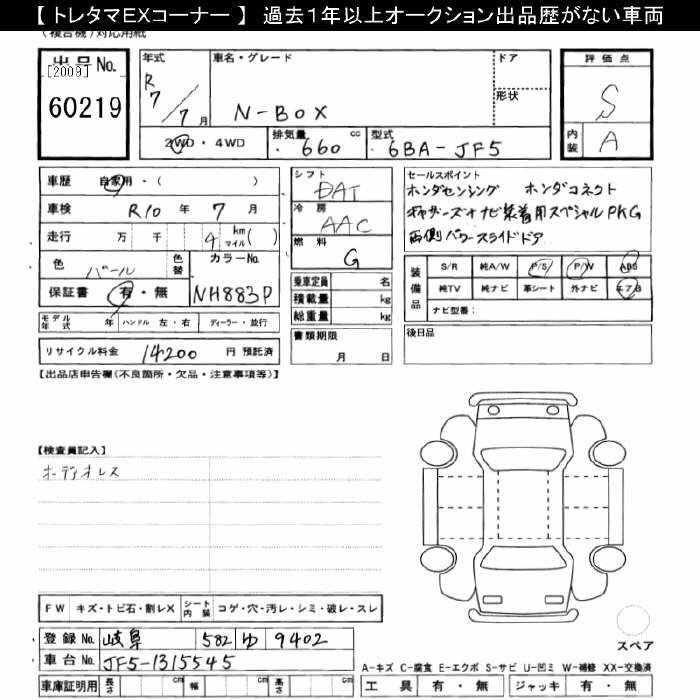 【 トレタマEXコーナー 】 過去1年以上オークション出品歴がない車両
（複合機）対応用紙
出品No.
[2009]
60219
年式
R 7 / 7 月
車名・グレード
N-BOX
ドア
形状
評価点
S
内装 A
2WD・4WD
排気量 660 cc
型式 6BA-JF5
車歴 自家用・( )
車検 R10 年 7 月
走行 万 千 4 km マイル ( )
色 パール 色替
カラーNo. NH883P
保証書 有・無
モデル年式 年 ハンドル 左・右 ディーラー・並行
リサイクル料金 14200 円 預託済
シフト DAT
冷房 AAC
燃料 G
乗車定員 名
積載量 kg
総重量 kg
書類期限
月 日
セールスポイント
ホンダセンシング ホンダコネクト
ギャザーズナビ装着用スペシャルPKG
両側パワースライドドア
装備品
S/R 純A/W P/S P/W ABS
純TV 純ナビ 革シート 外ナビ エアB
ナビ型番：
後日品
【出品店申告欄(不良箇所・欠品・注意事項等)】
【検査員記入】
オーディオレス
FW キズ・トビ石・割レX シート内装 コゲ・穴・汚レ・シミ・破レ・スレ
登録No. 岐阜 582 ゆ 9402
車台No. JF5-1315545
車庫証明用 長さ cm 幅 cm 高さ cm
スペア
A-キズ C-腐食 E-エクボ S-サビ U-凹ミ W-補修 XX-交換済
工具 有・無 ジャッキ 有・無